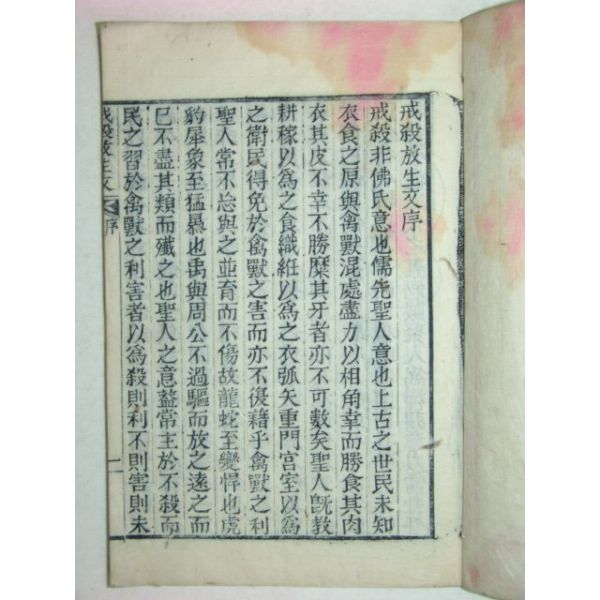 戒殺放生文序
戒殺非佛氏意也儒先聖人意也上古之世民未知
衣食之原與禽獸混處盡力以相角幸而勝食其肉
衣其皮不幸不勝糜其牙者亦不可數矣聖人旣教
耕稼以爲之食織紝以爲之衣弧矢重門宮室以爲
之衛民得免於禽獸之害而亦不復藉乎禽獸之利
聖人常不忍與之並育而不傷故龍蛇至變悍也虎
豹犀象至猛暴也禹與周公不過驅而放之遠之而
已不盡其類而殲之也聖人之意葢常主於不殺而
民之習於禽獸之利害者以爲殺則利不則害則未
戒殺放生文 序 一